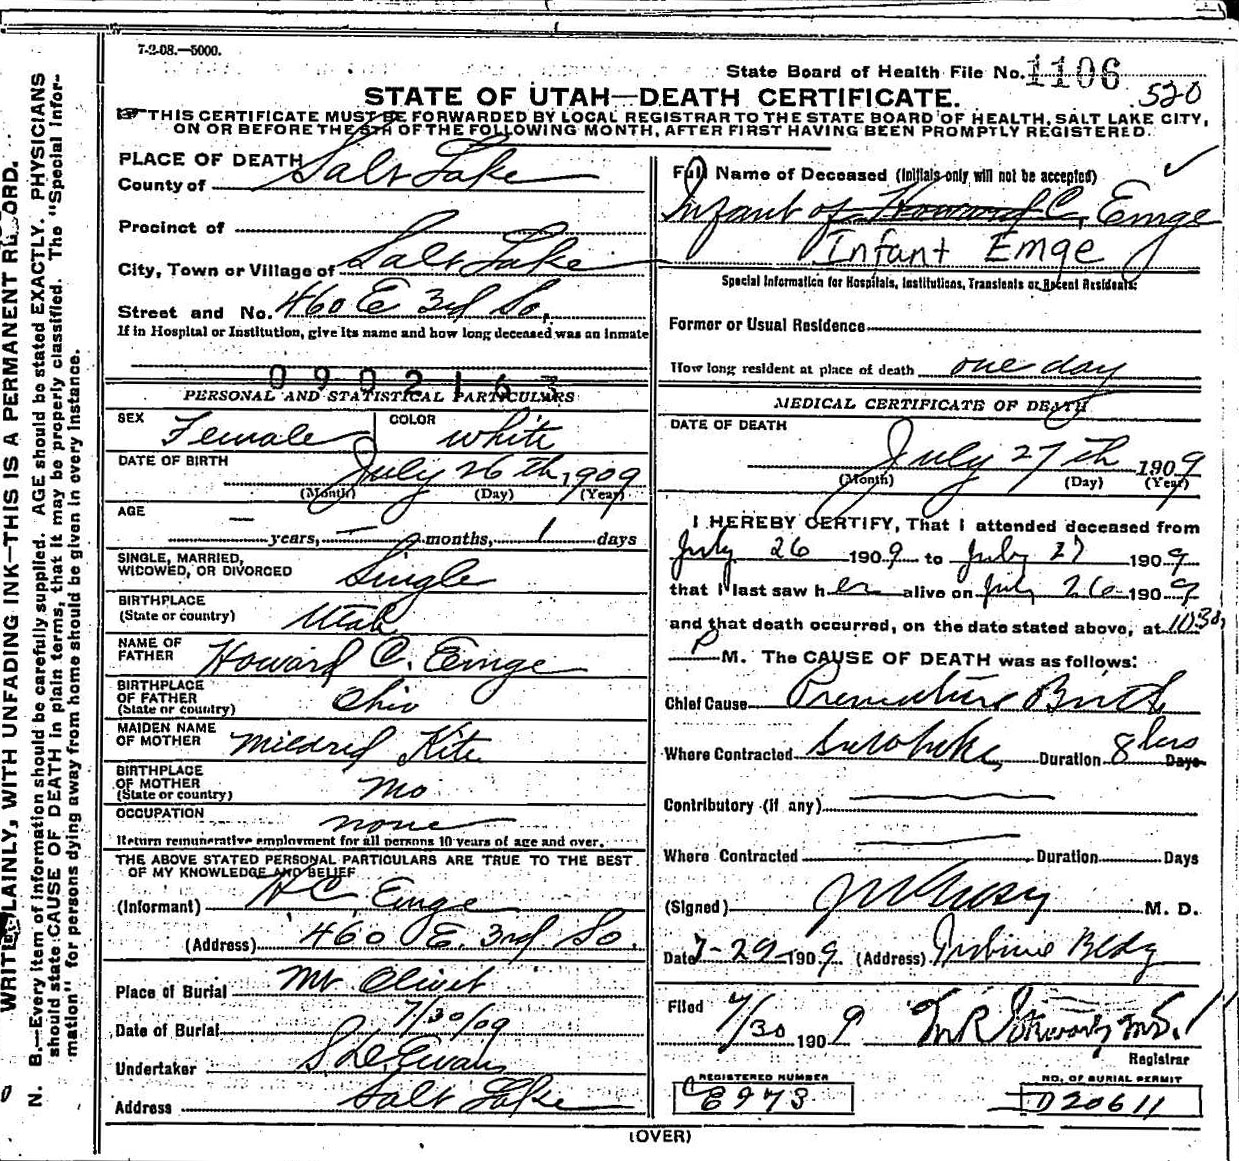 7-2-08.—5000.
State Board of Health File No. 1106
520
STATE OF UTAH—DEATH CERTIFICATE.
☞THIS CERTIFICATE MUST BE FORWARDED BY LOCAL REGISTRAR TO THE STATE BOARD OF HEALTH, SALT LAKE CITY,
ON OR BEFORE THE 5TH OF THE FOLLOWING MONTH, AFTER FIRST HAVING BEEN PROMPTLY REGISTERED.
PLACE OF DEATH
County of Salt Lake
Precinct of
City, Town or Village of Salt Lake
Street and No. 460 E 3rd So.
If in Hospital or Institution, give its name and how long deceased was an inmate
0902163
PERSONAL AND STATISTICAL PARTICULARS
SEX Female COLOR White
DATE OF BIRTH July 26th, 1909
(Month) (Day) (Year)
AGE — years, — months, 1 days
SINGLE, MARRIED,
WIDOWED, OR DIVORCED Single
BIRTHPLACE
(State or country) Utah
NAME OF
FATHER Howard C. Emge
BIRTHPLACE
OF FATHER
(State or country) Ohio
MAIDEN NAME
OF MOTHER Mildred Kite
BIRTHPLACE
OF MOTHER
(State or country) Mo
OCCUPATION none
Return remunerative employment for all persons 10 years of age and over.
THE ABOVE STATED PERSONAL PARTICULARS ARE TRUE TO THE BEST
OF MY KNOWLEDGE AND BELIEF
(Informant) H C Emge
(Address) 460 E. 3rd So.
Place of Burial Mt Olivet
Date of Burial 7/30/09
Undertaker S. D. Evans
Address Salt Lake
Full Name of Deceased (Initials only will not be accepted)
Infant of Howard C. Emge
Infant Emge
Special Information for Hospitals, Institutions, Transients or Recent Residents:
Former or Usual Residence
How long resident at place of death one day
MEDICAL CERTIFICATE OF DEATH
DATE OF DEATH
July 27th 1909
(Month) (Day) (Year)
I HEREBY CERTIFY, That I attended deceased from
July 26 1909 to July 27 1909
that I last saw her alive on July 26 1909
and that death occurred, on the date stated above, at 10 30
P M. The CAUSE OF DEATH was as follows:
Chief Cause Premature Birth
Where Contracted Duration 8 hrs Days
Contributory (if any)
Where Contracted Duration Days
(Signed) M. D.
Date 7-29-1909 (Address) Bldg
Filed 7/30 1909 M.D.
Registrar
REGISTERED NUMBER
E973
NO. OF BURIAL PERMIT
D20611
(OVER)
WRITE PLAINLY, WITH UNFADING INK—THIS IS A PERMANENT RECORD.
N. B.—Every item of information should be carefully supplied. AGE should be stated EXACTLY. PHYSICIANS
should state CAUSE OF DEATH in plain terms, that it may be properly classified. The "Special Infor-
mation" for persons dying away from home should be given in every instance.